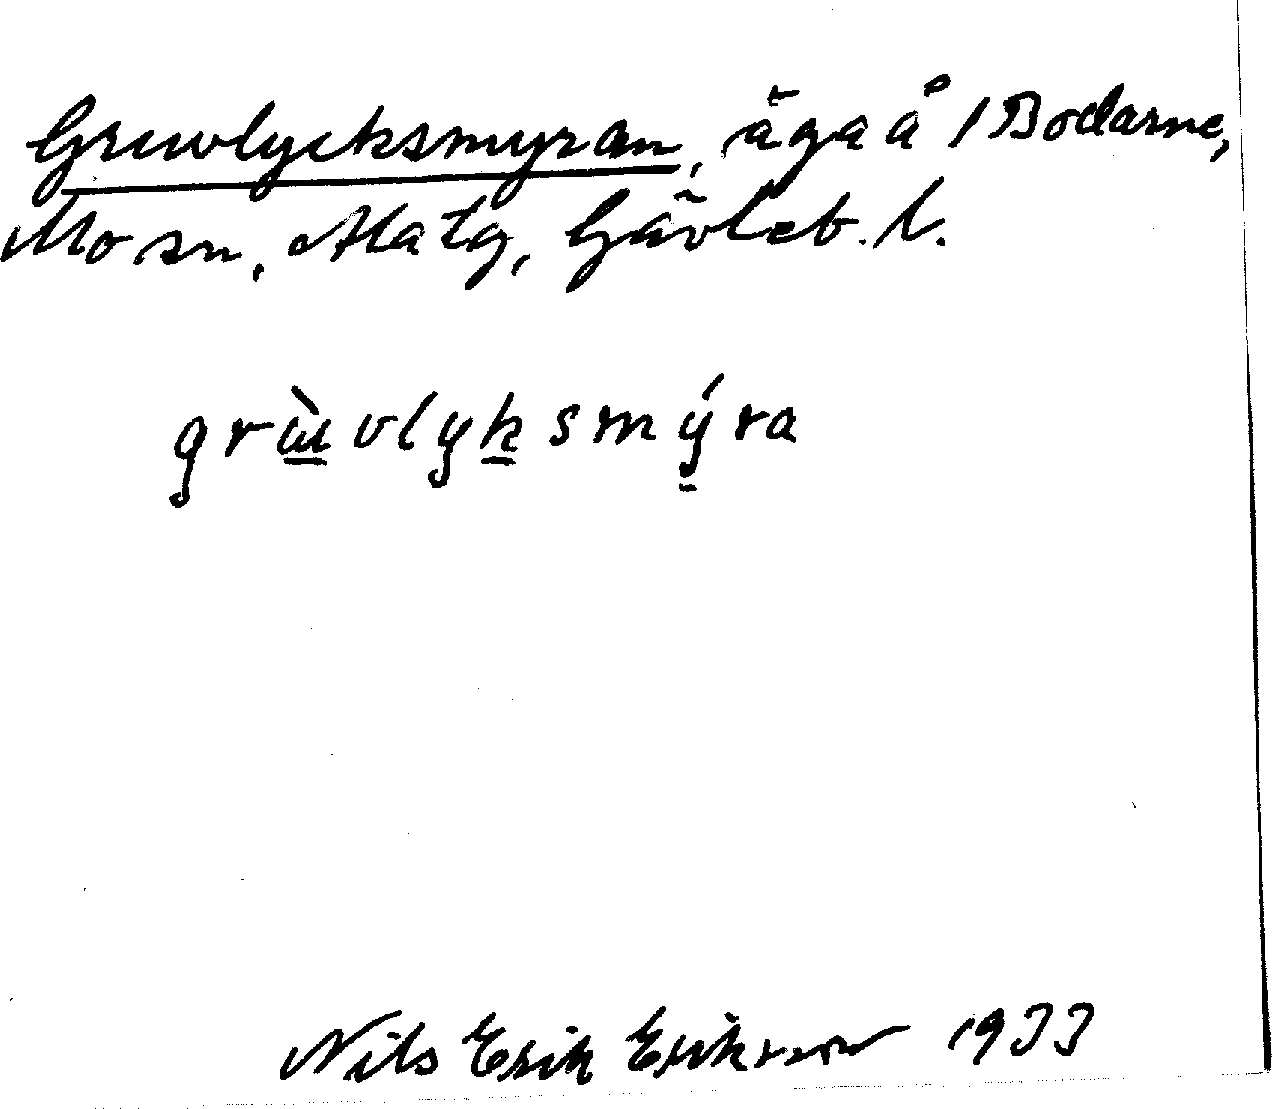 Gruvlycksmyran, äga å 1 Bodarne,
Mo sn, Ala tg, Gävleb. l.
grɯ̀vlyksmýra
Nils Erik Eriksson 1933